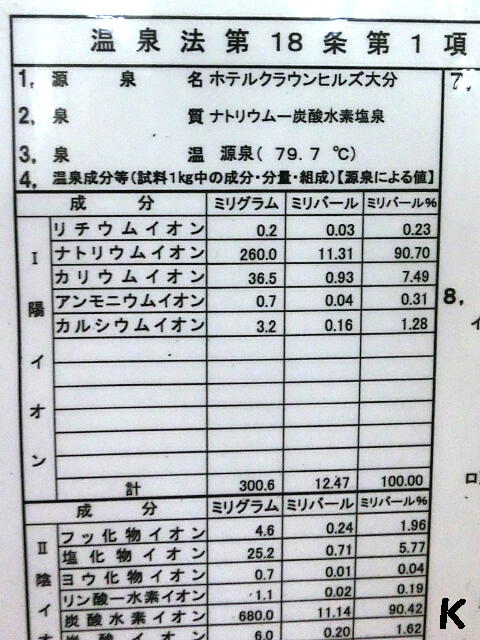 温泉法第18条第1項
1, 源泉名 ホテルクラウンヒルズ大分
7,
2, 泉質 ナトリウムー炭酸水素塩泉
3, 泉温 源泉( 79.7 ℃)
4, 温泉成分等(試料1kg中の成分・分量・組成)【源泉による値】
成分 ミリグラム ミリバール ミリバール%
I 陽イオン
リチウムイオン 0.2 0.03 0.23
ナトリウムイオン 260.0 11.31 90.70
カリウムイオン 36.5 0.93 7.49
アンモニウムイオン 0.7 0.04 0.31
8,
カルシウムイオン 3.2 0.16 1.28
イ
ロ
計 300.6 12.47 100.00
成分 ミリグラム ミリバール ミリバール%
II 陰イオ
フッ化物イオン 4.6 0.24 1.96
塩化物イオン 25.2 0.71 5.77
ヨウ化物イオン 0.7 0.01 0.04
リン酸一水素イオン 1.1 0.02 0.19
炭酸水素イオン 680.0 11.14 90.42
炭酸イオン 6.0 0.20 1.62
K